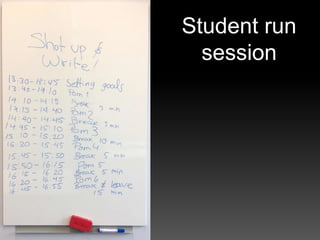 Shut up &
Write!
13:30 - 13:45 Setting goals
13:45 - 14:10 Pom 1
14 10 - 14 15 Break 5 min
14:15 - 14:40 Pom 2
14:40 - 14:45 Break 5 min
14:45 - 15:10 Pom 3
15 10 - 15:20 Break 10 min
15:20 - 15:45 Pom 4
15:45 - 15:50 Break 5 min
15:50 - 16:15 Pom 5
16 15 - 16 20 Break 5 min
16 20 - 16 45 Pom 6
16 45 - 16:55 Break & leave
15 min
Student run
session